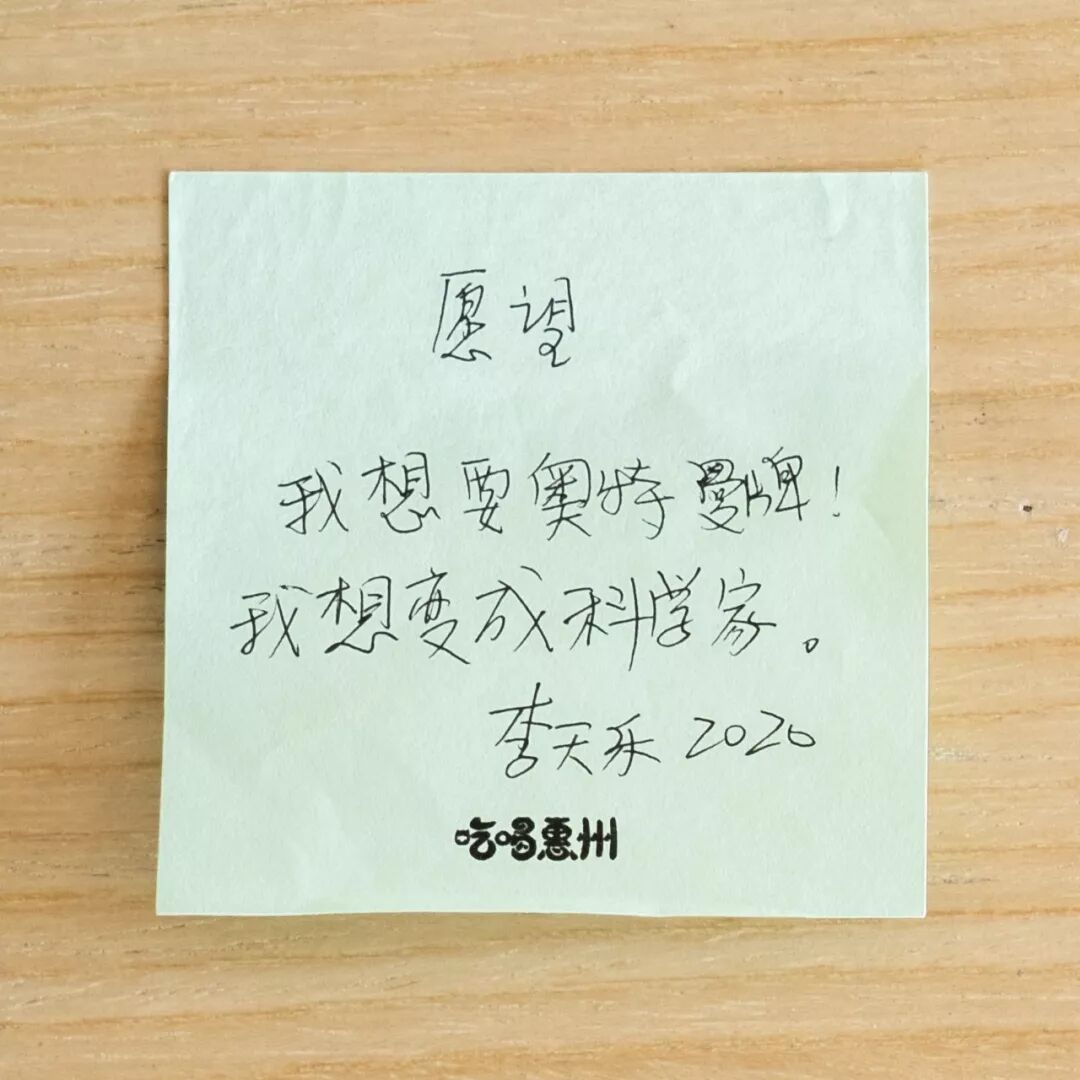 愿望
我想要奥特曼牌！
我想变成科学家。
李天乐 2020
吃喝惠州